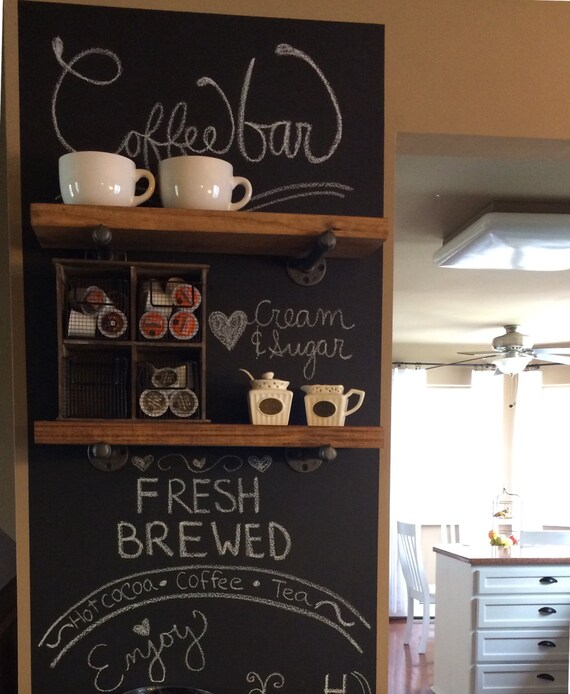 Coffee bar
Cream
& Sugar
FRESH
BREWED
Hot cocoa • Coffee • Tea
Enjoy